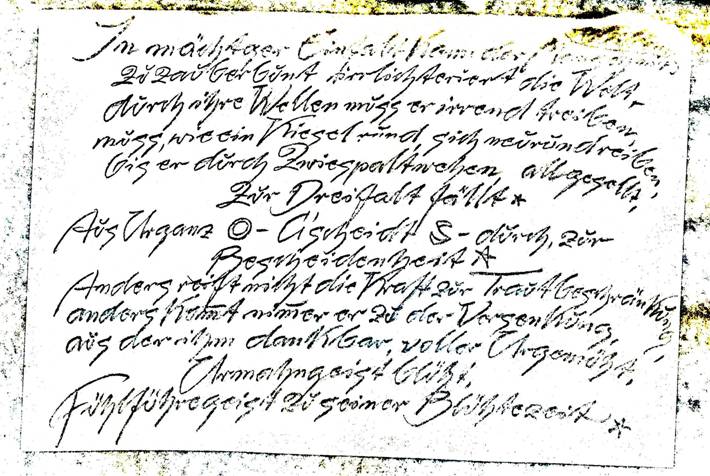 In mächtger Einfalt kann der Mensch nits
zu zaubërbunt irrlichteriert die Welt,
durch ihre Wellen muss er irrend treiben,
muss, wie ein Kiesel rund, sich neurundreiben,
bis er durch Zwiespaltwehen, allgesellt,
zur Dreifalt fällt *
Aus Urganz ◎ - Ci scheidt S - durch, zur
Bescheidenheit ☆
Anders reift nicht die Kraft zur Trautbeschränkung,
anders kommt nimmer er zu der Versenkung,
aus der ihm dankbar, voller Urgemüht,
Urmahngeist blüht,
Fühlführegeist zu seiner Blühtezeit ☆